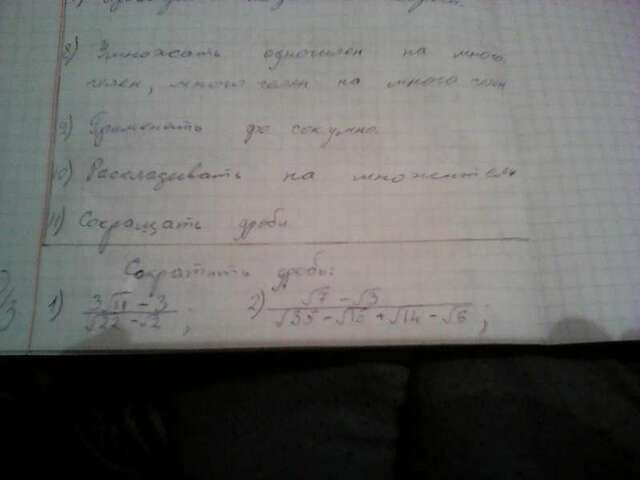 8) Умножать одночлен на много
член, много член на много член
9) Применять фсу
10) Раскладывать на множители
11) Сокращать дроби.
Сократить дроби:
1) (3√11 - 3)/(√22 - √2) ; 2) (√7 - √3)/(√35 - √15 + √14 - √6) ;